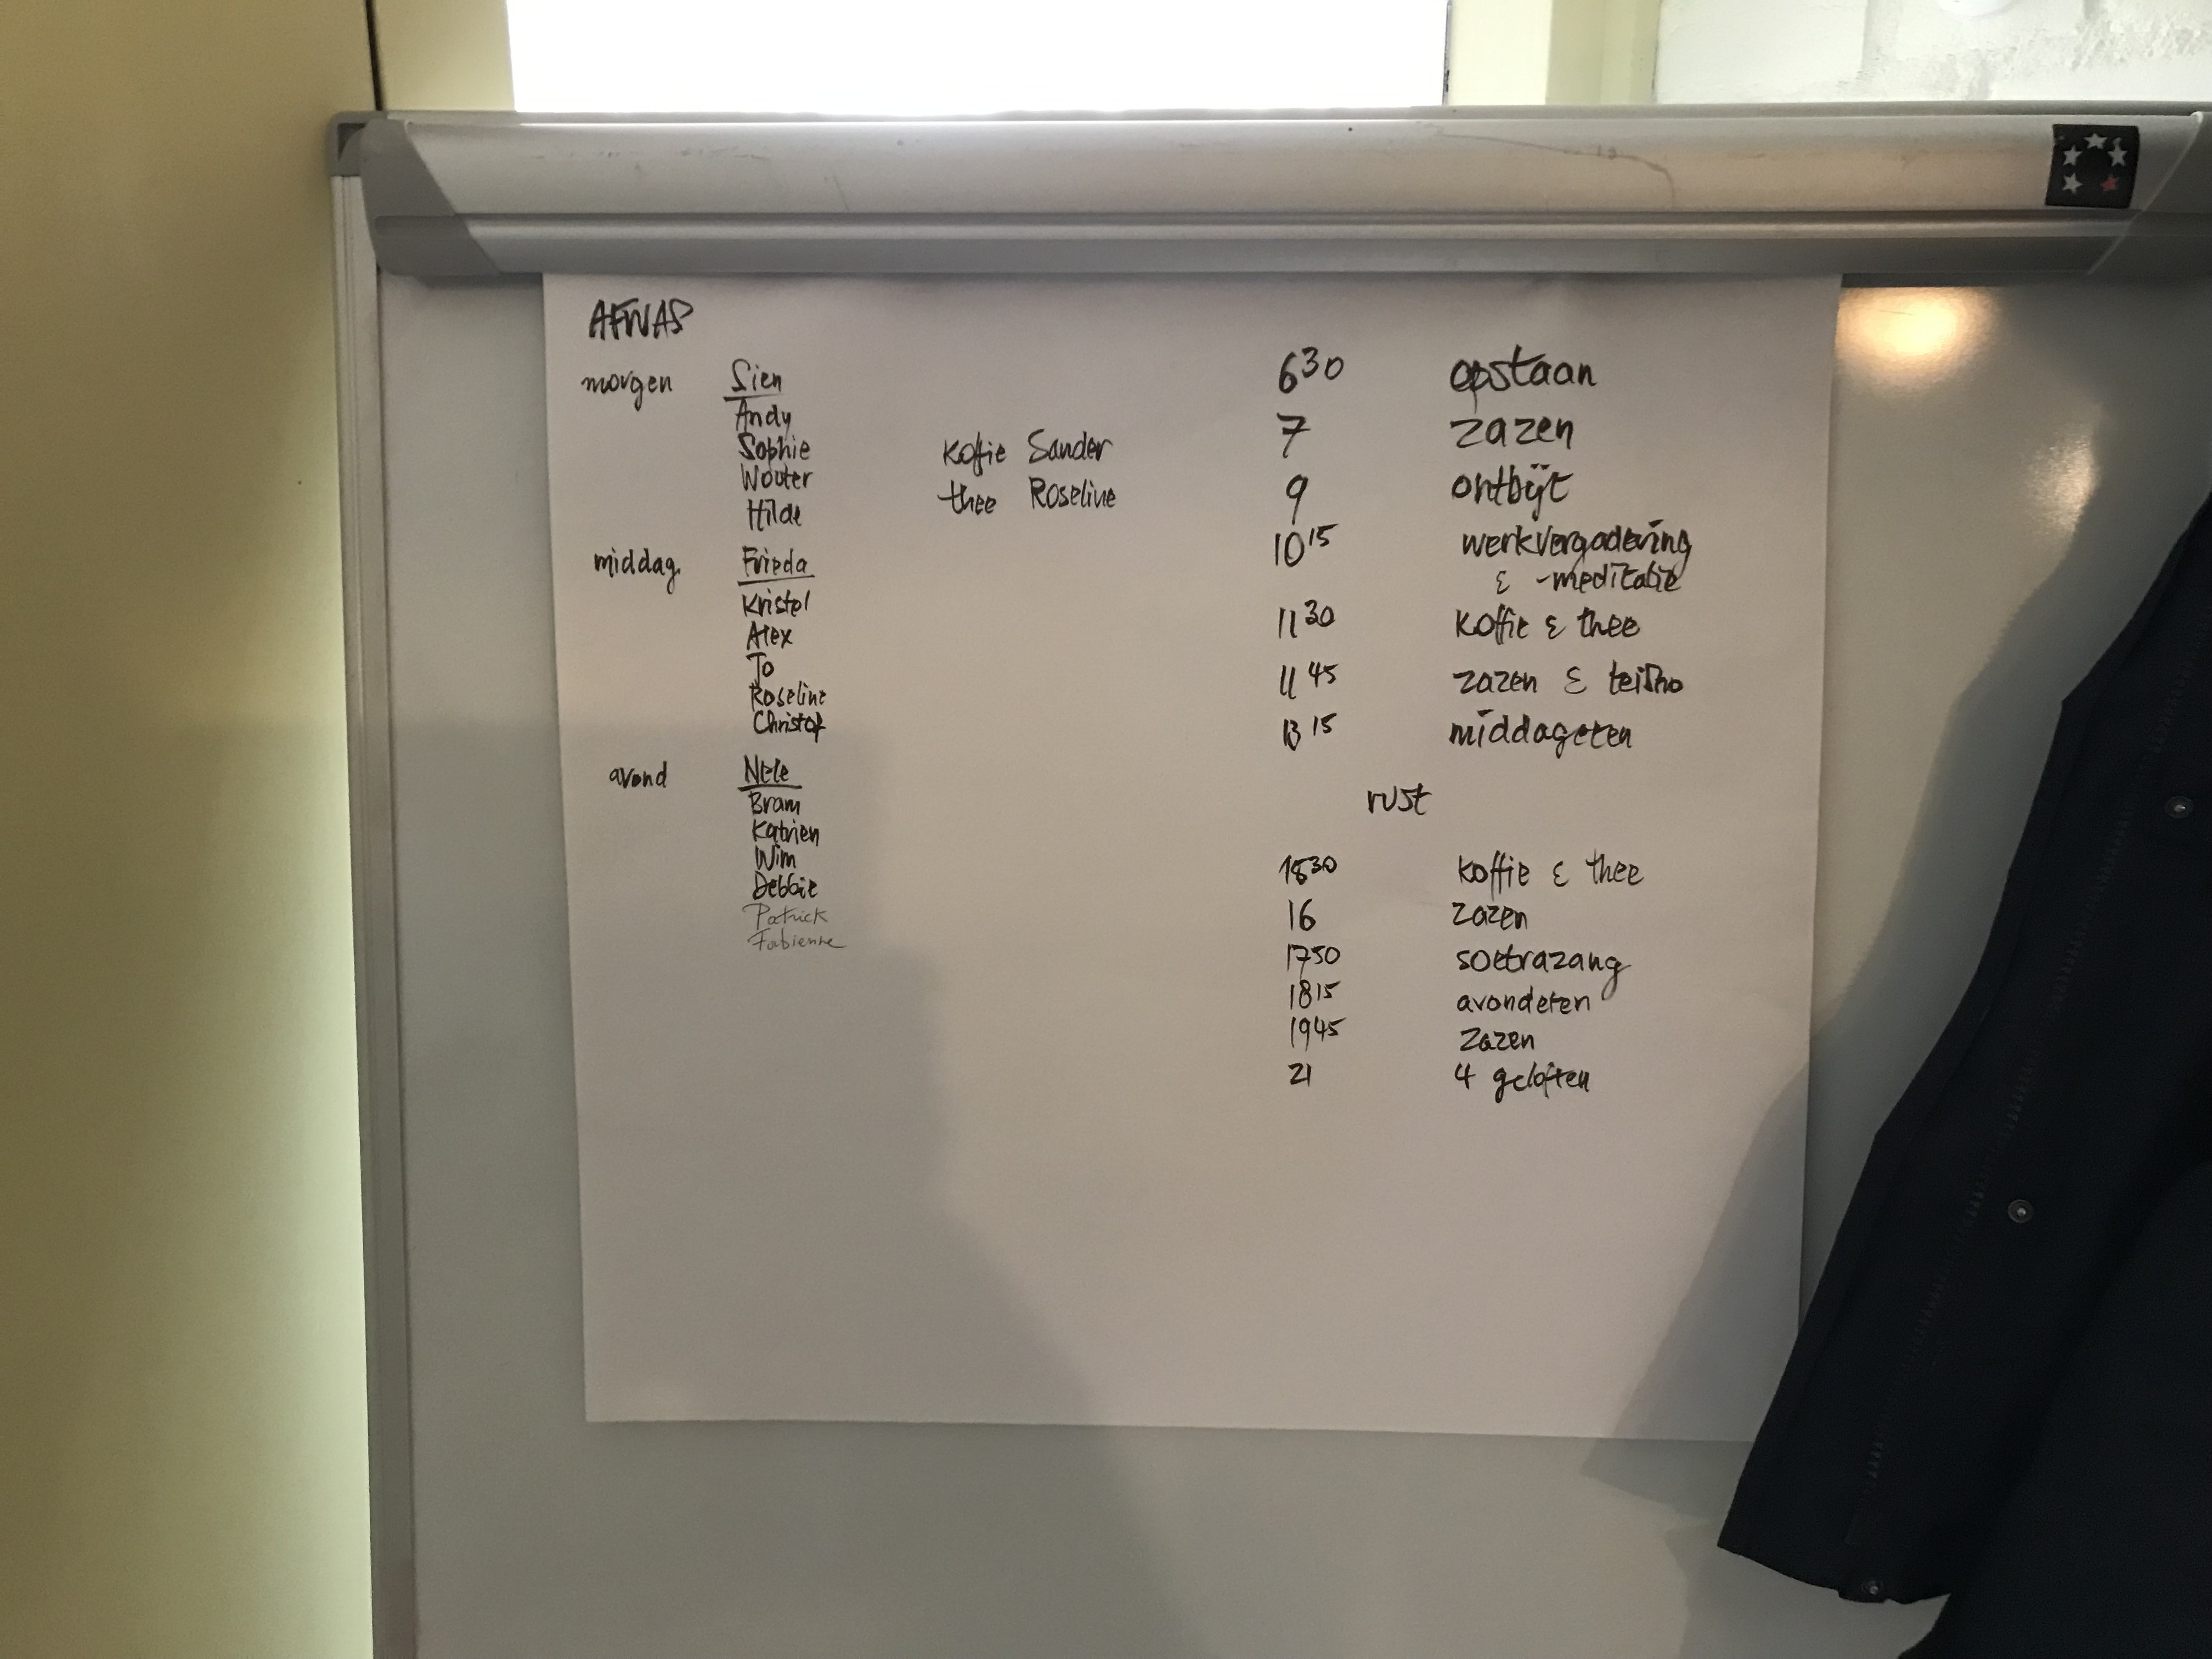 AFWAS
morgen Sien
Andy
Sophie
Wouter
Hilde
middag Frieda
Kristel
Alex
To
Roseline
Christof
avond Nele
Bram
Katrien
Wim
Debbie
Patrick
Fabienne
koffie Sander
thee Roseline
6 30 opstaan
7 zazen
9 ontbijt
10 15 werkvergadering
& -meditatie
11 30 koffie & thee
11 45 zazen & teisho
13 15 middageten
rust
15 30 koffie & thee
16 zazen
17 50 soetrazang
18 15 avondeten
19 45 zazen
21 4 geloften